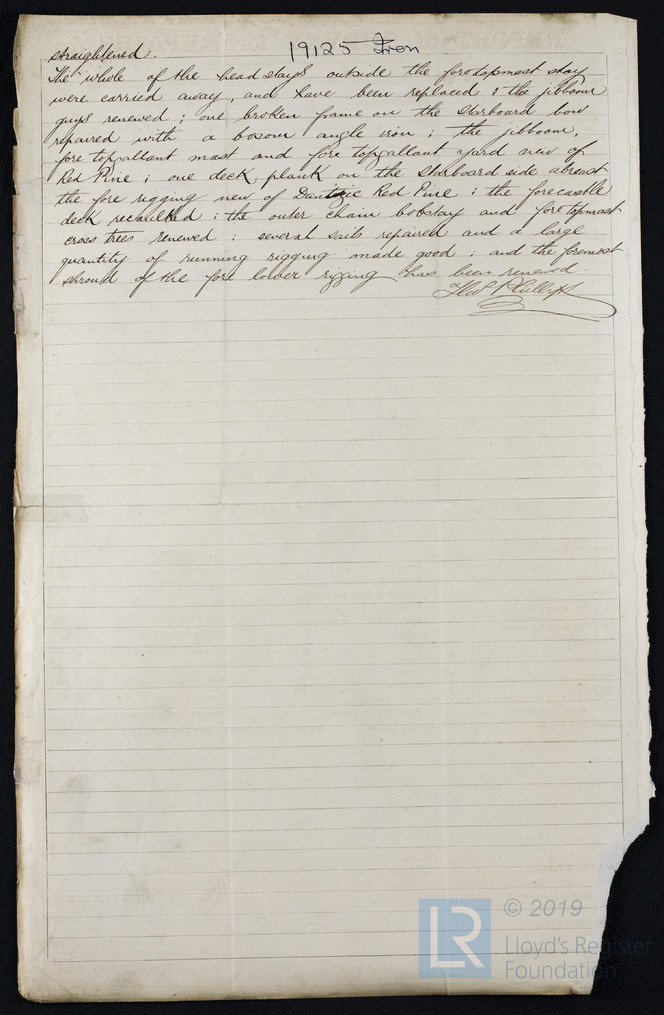 19125 Iron
straightened.
The whole of the head stays outside the fore topmost stay
were carried away, and have been replaced & the jibboom
guys renewed; one broken frame on the starboard bow
repaired with a bosom angle iron; the jibboom,
fore topgallant mast and fore topgallant yard new of
Red Pine; one deck plank on the starboard side abreast
the fore rigging new of Dantzic Red Pine; the forecastle
deck recaulked; the outer chain bobstay and fore topmast
cross trees renewed; several sails repaired and a large
quantity of running rigging made good; and the foremost
shroud of the fore lower rigging has been renewed.
LR
© 2019
Lloyd's Register
Foundation